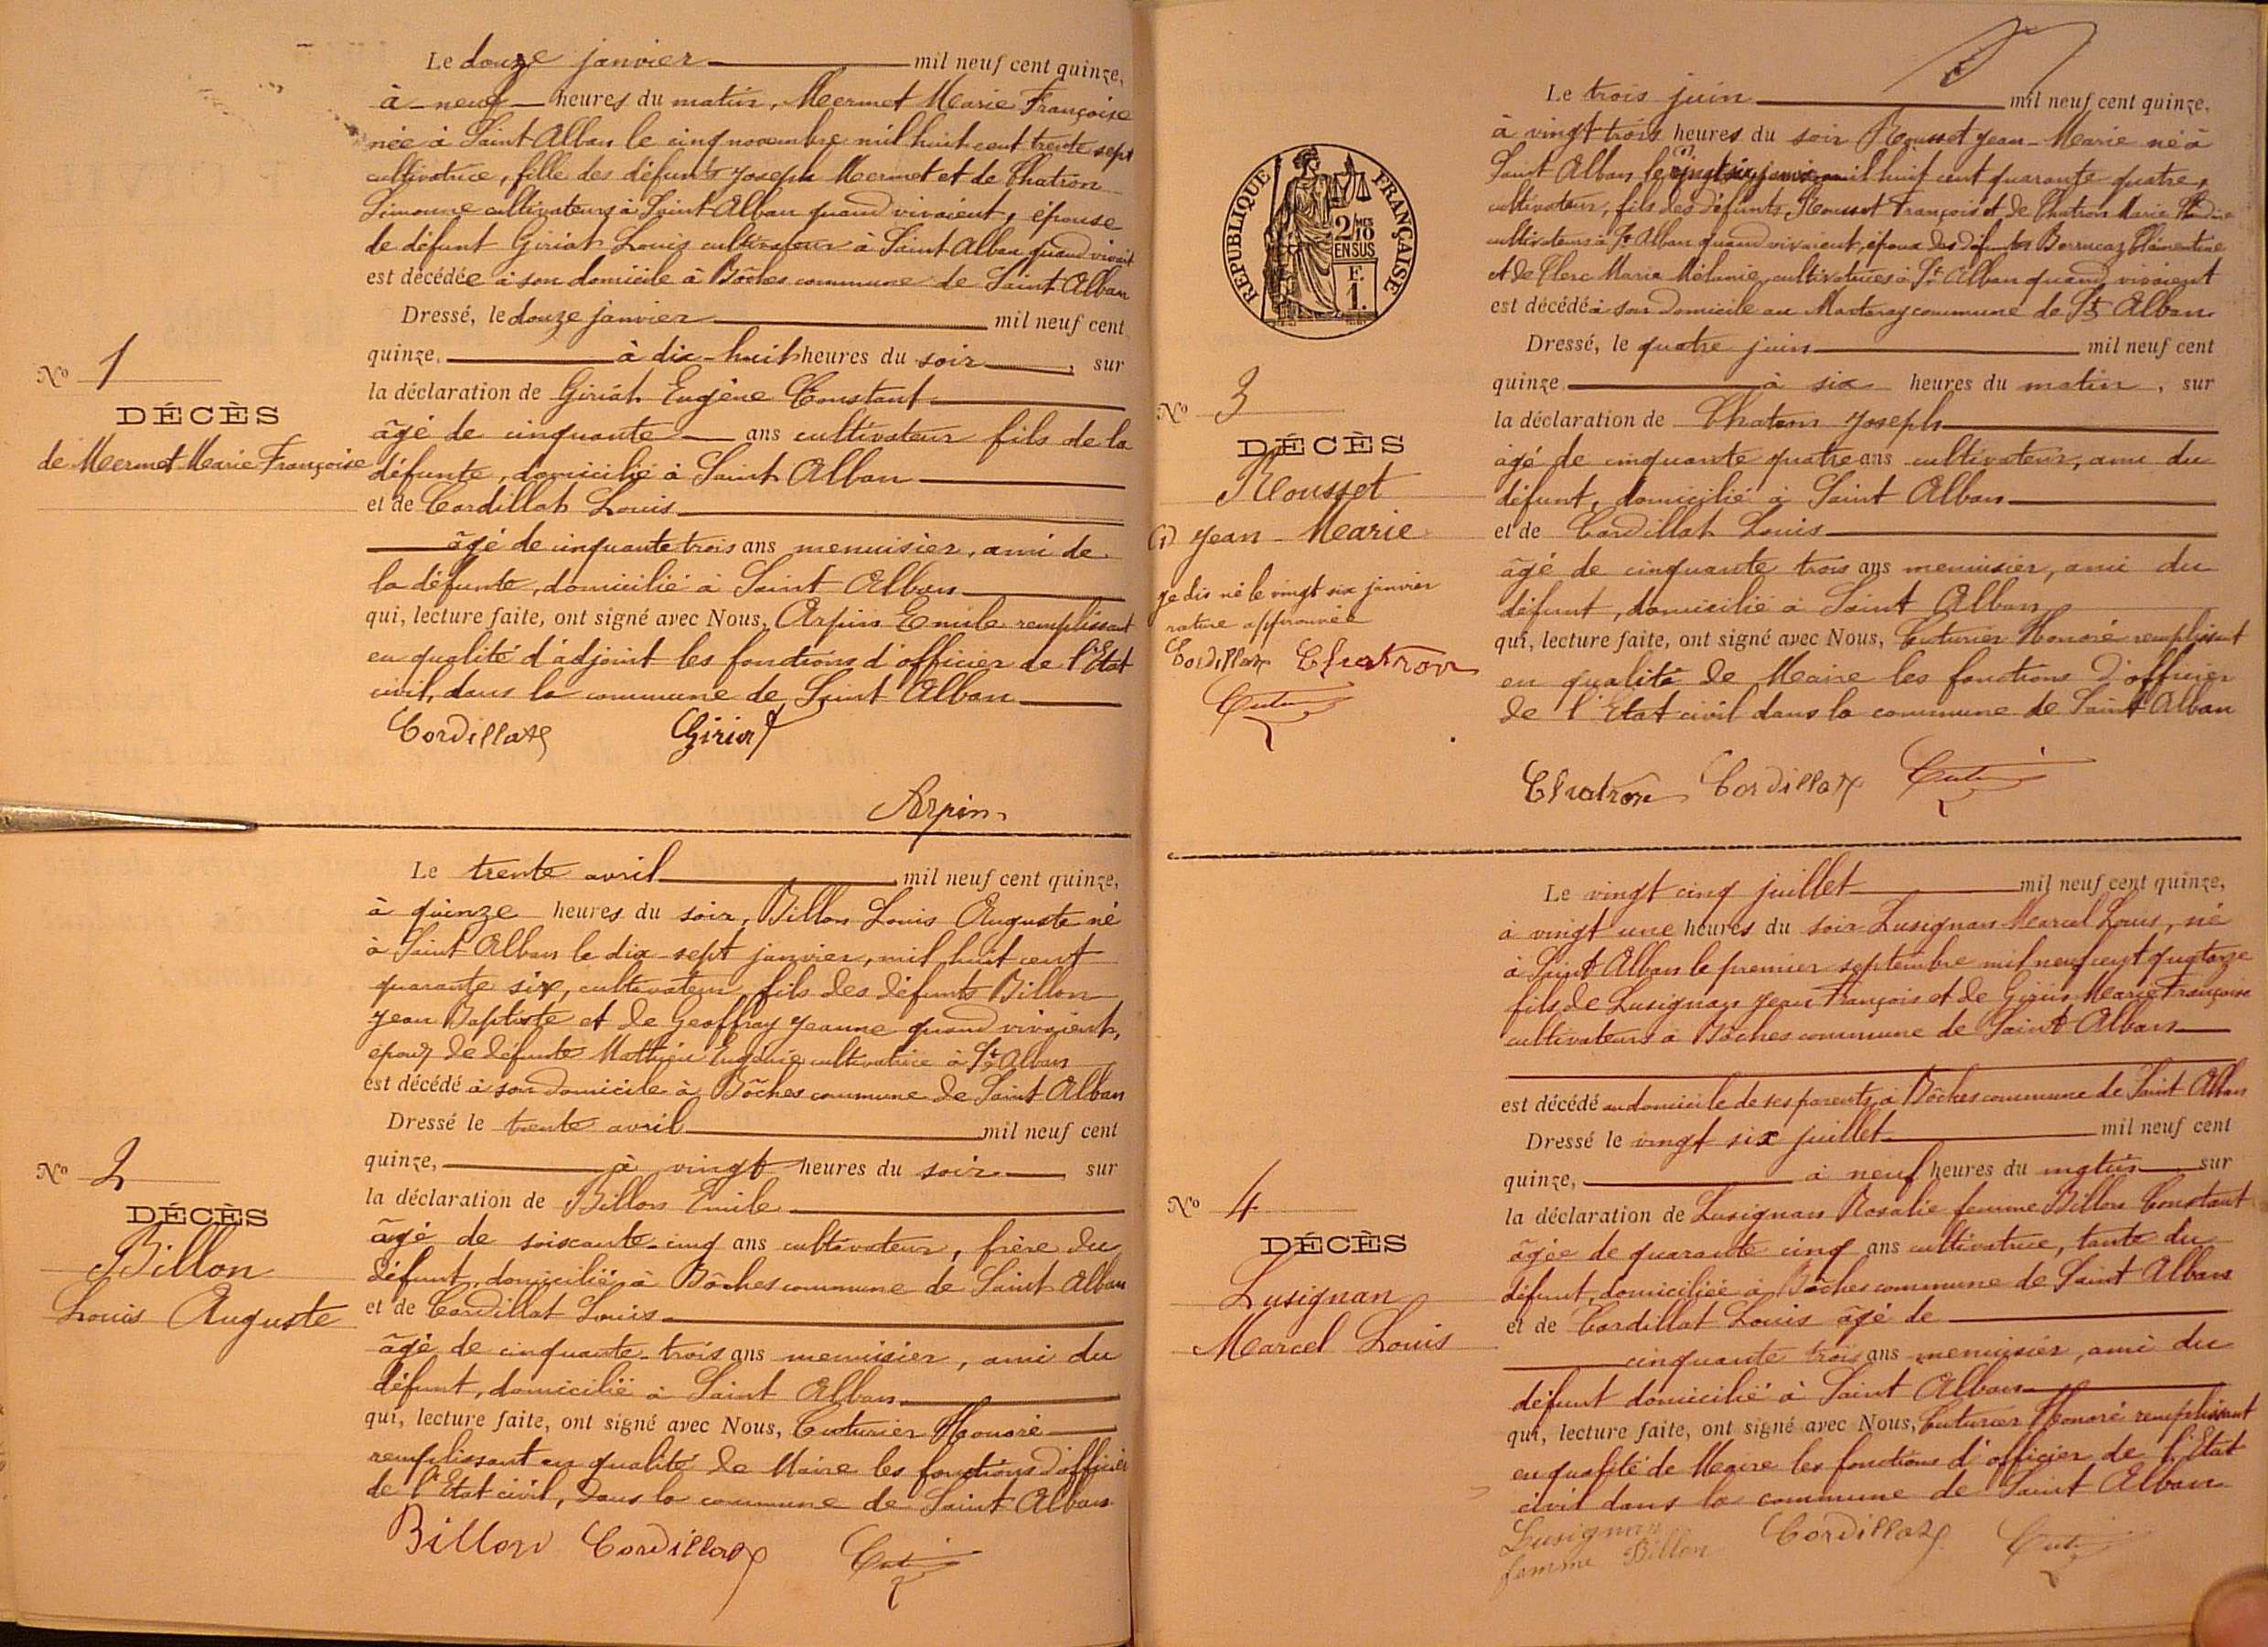 Le douze janvier mil neuf cent quinze,
à neuf heures du matin, Mermet Marie Françoise
née à Saint Alban le cinq novembre mil huit cent trente sept
cultivatrice, fille des défunts Joseph Mermet et de Chatron
Simonne cultivateurs à Saint Alban quand vivaient, épouse
de défunt Giriat Louis cultivateur à Saint Alban quand vivait
est décédée à son domicile à Bôches commune de Saint Alban
Dressé, le douze janvier mil neuf cent
quinze, à dix-huit heures du soir, sur
la déclaration de Giriat Eugène Constant
âgé de cinquante ans cultivateur fils de la
défunte, domicilié à Saint Alban
et de Cordillat Louis
âgé de cinquante trois ans menuisier, ami de
la défunte, domicilié à Saint Alban
qui, lecture faite, ont signé avec Nous, Arpin Emile remplissant
en qualité d'adjoint les fonctions d'officier de l'Etat
civil, dans la commune de Saint Alban
Cordillat Giriat
Arpin
No 1
DÉCÈS
de Mermet Marie Françoise
Le trente avril mil neuf cent quinze,
à quinze heures du soir, Billon Louis Auguste né
à Saint Alban le dix-sept janvier, mil huit cent
quarante six, cultivateur, fils des défunts Billon
Jean Baptiste et de Geoffray Jeanne quand vivaient,
époux de défunte Mathieu Eugénie cultivatrice à St Alban
est décédé à son domicile à Bôches commune de Saint Alban
Dressé le trente avril mil neuf cent
quinze, à vingt heures du soir, sur
la déclaration de Billon Emile
âgé de soixante-cinq ans cultivateur, frère du
défunt, domicilié à Bôches commune de Saint Alban
et de Cordillat Louis
âgé de cinquante-trois ans menuisier, ami du
défunt, domicilié à Saint Alban
qui, lecture faite, ont signé avec Nous, Couturier Honoré
remplissant en qualité de Maire les fonctions d'officier
de l'Etat civil, dans la commune de Saint Alban
Billon Cordillat
No 2
DÉCÈS
Billon
Louis Auguste
Le trois juin mil neuf cent quinze,
à vingt trois heures du soir Rousset Jean-Marie né à
Saint Alban le (1) vingt six janvier mil huit cent quarante quatre,
cultivateur, fils des défunts Rousset François et de Chatron Marie
cultivateurs à St Alban quand vivaient, époux des défuntes Berrucaz Clémentine
et de Clerc Marie Mélanie, cultivatrices à St Alban quand vivaient
est décédé à son domicile au Martoray commune de St Alban
Dressé, le quatre juin mil neuf cent
quinze à six heures du matin, sur
la déclaration de Chatron Joseph
âgé de cinquante quatre ans cultivateur, ami du
défunt, domicilié à Saint Alban
et de Cordillat Louis
âgé de cinquante trois ans menuisier, ami du
défunt, domicilié à Saint Alban
qui, lecture faite, ont signé avec Nous, Couturier Honoré remplissant
en qualité de Maire les fonctions d'officier
de l'Etat civil dans la commune de Saint Alban
Chatron Cordillat
RÉPUBLIQUE FRANÇAISE
2/10
EN SUS
F.
1.
No 3
DÉCÈS
Rousset
Jean-Marie
(1) je dis né le vingt six janvier
rature approuvée
Cordillat Chatron
Le vingt cinq juillet mil neuf cent quinze,
à vingt une heures du soir Lusignan Marcel Louis, né
à Saint Alban le premier septembre mil neuf cent quatorze
fils de Lusignan Jean François et de Girin Marie Françoise
cultivateurs à Bôches commune de Saint Alban
est décédé au domicile de ses parents à Bôches commune de Saint Alban
Dressé le vingt six juillet mil neuf cent
quinze, à neuf heures du matin sur
la déclaration de Lusignan Rosalie femme Billon Constant
âgée de quarante cinq ans cultivatrice, tante du
défunt, domiciliée à Bôches commune de Saint Alban
et de Cordillat Louis âgé de
cinquante trois ans menuisier, ami du
défunt domicilié à Saint Alban
qui, lecture faite, ont signé avec Nous, Couturier Honoré remplissant
en qualité de Maire les fonctions d'officier de l'Etat
civil dans la commune de Saint Alban
Lusignan Cordillat
femme Billon
No 4
DÉCÈS
Lusignan
Marcel Louis